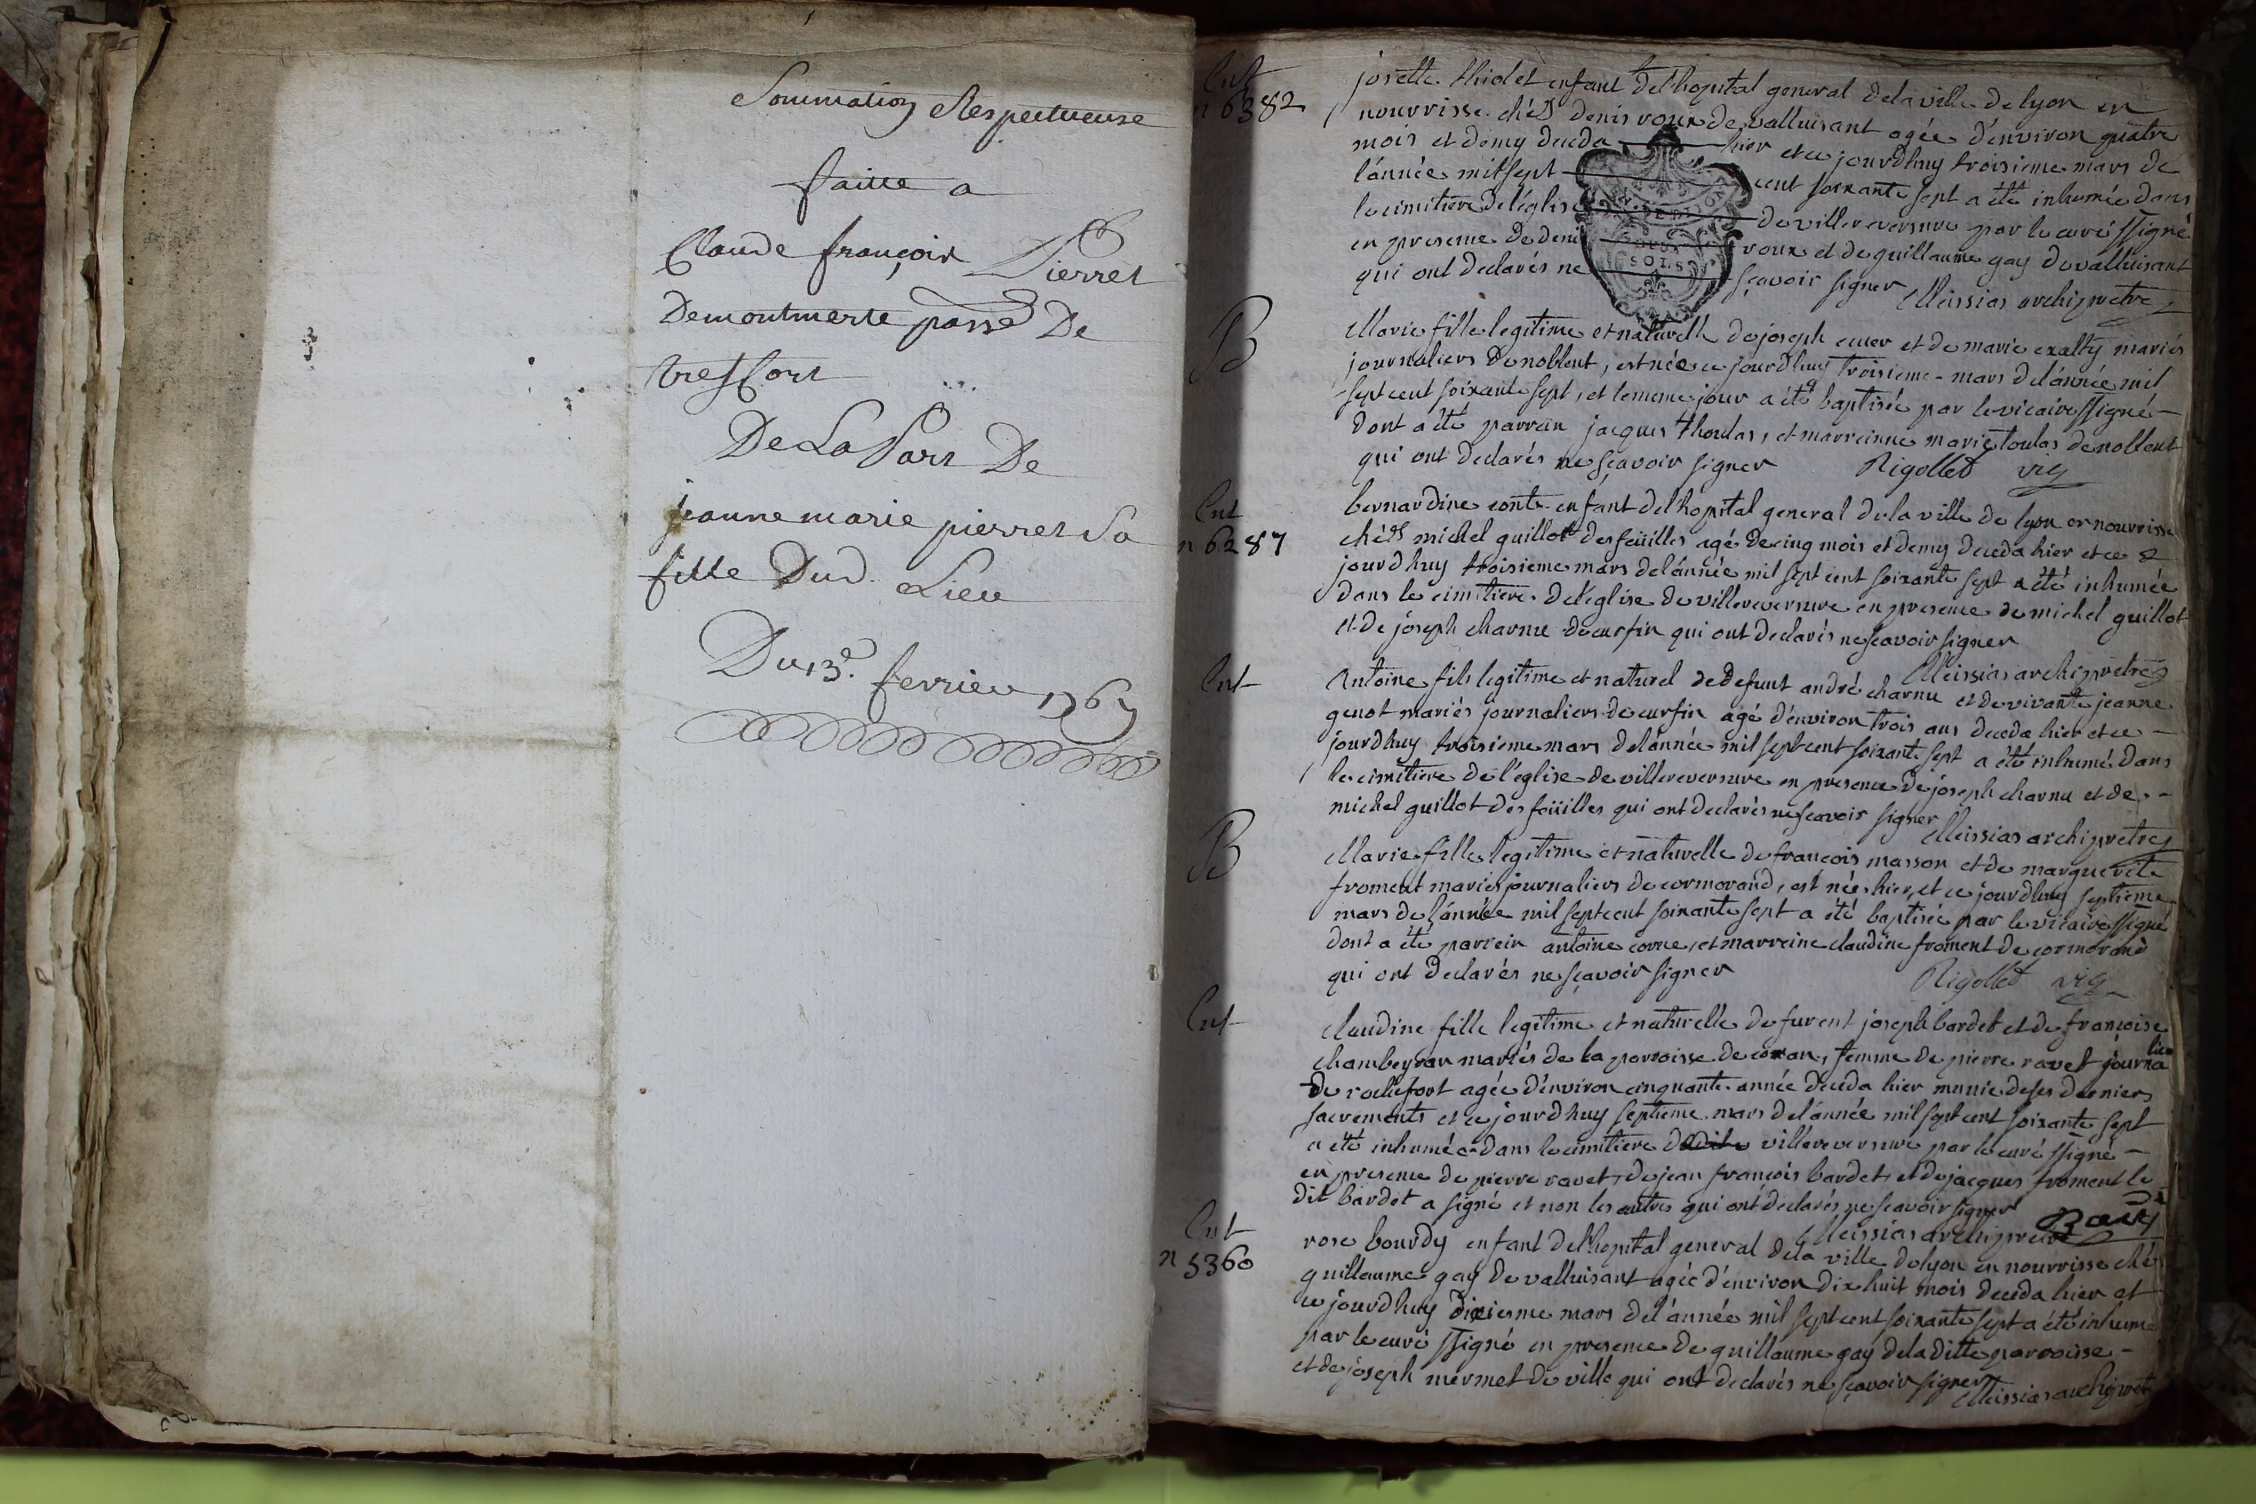 Sommation Respectueuse
faitte a
Claude françois Pierret
Demontmerle parr.e De
treffort
De La Part De
jeanne marie pierret Sa
fille Dud. Lieu
Du 13.e fevrier 1767
Ent
n 6382
josette thiolet enfant del'hopital general dela ville de lyon en
nourrisse chés denis roux de valluisant agée d'environ quatre
mois et demy deceda hier et ce jourdhuy troisieme mars de
l'année mil sept cent soixante sept a été inhumée dans
le cimitiere de l'eglise de villereversure par le curé ssigné
en presence de denis roux et de guillaume gay de valluisant
qui ont declarés ne sçavoir signer Meissias archipretre
B
Marie fille legitime et naturelle de joseph et de marie mariés
journaliers de noblent, est née ce jourdhuy troisieme mars del'année mil
sept cent soixante sept, et le meme jour a été baptisée par le vicaire ssigné
dont a été parrein jacques thoulas, et marreinne marie toulas de noblent
qui ont declarés ne sçavoir signer Rigollet vic
Ent
n 6287
bernardine conte enfant del'hopital general dela ville de lyon en nourrisse
chés michel guillot des feüilles agé de cinq mois et demy deceda hier et ce
jourdhuy troisieme mars del'année mil sept cent soixante sept a été inhumée
dans le cimitiere de l'eglise de villereversure en presence de michel guillot
et de joseph charnu de curfin qui ont declarés ne sçavoir signer
Meissias archipretre
Ent
Antoine fils legitime et naturel de defunt andré charnu et de vivante jeanne
genot mariés journaliers de curfin agé d'environ trois ans deceda hier et ce
jourdhuy troisieme mars del'année mil sept cent soixante sept a été inhumé dans
le cimitiere de l'eglise de villereversure en presence de joseph charnu et de
michel guillot des feüilles qui ont declarés ne sçavoir signer Meissias archipretre
B
Marie fille legitime et naturelle de francois masson et de marguerite
froment mariés journaliers de cormorand, est née hier, et ce jourdhuy septieme
mars de l'année mil sept cent soixante sept a été baptisée par le vicaire ssigné
dont a été parrein antoine corne, et marreine claudine froment de cormorand
qui ont declarés ne sçavoir signer Rigollet vic
Ent
claudine fille legitime et naturelle de furent joseph bardet et de francoise
chambeyran mariés de la parroisse de coran, femme de pierre ravet journalier
de rochefort agée d'environ cinquante année deceda hier munie de ses derniers
sacrements et ce jourdhuy septieme mars del'année mil sept cent soixante sept
a été inhumée dans le cimitiere de villereversure par le curé ssigné
en presence de pierre ravet, de jean francois bardet, et de jacques froment le
dit bardet a signé et non les autres qui ont declarés ne sçavoir signer
Meissias archipretre
Ent
n 5360
rose bourdy enfant del'hopital general dela ville de lyon en nourrisse chés
guillaume gay de valluisant agée d'environ dix huit mois deceda hier et
ce jourdhuy dixieme mars del'année mil sept cent soixante sept a été inhumé
par le curé ssigné en presence de guillaume gay dela ditte parroisse
et de joseph mermet de ville qui ont declarés ne sçavoir signer
Meissias archipretre